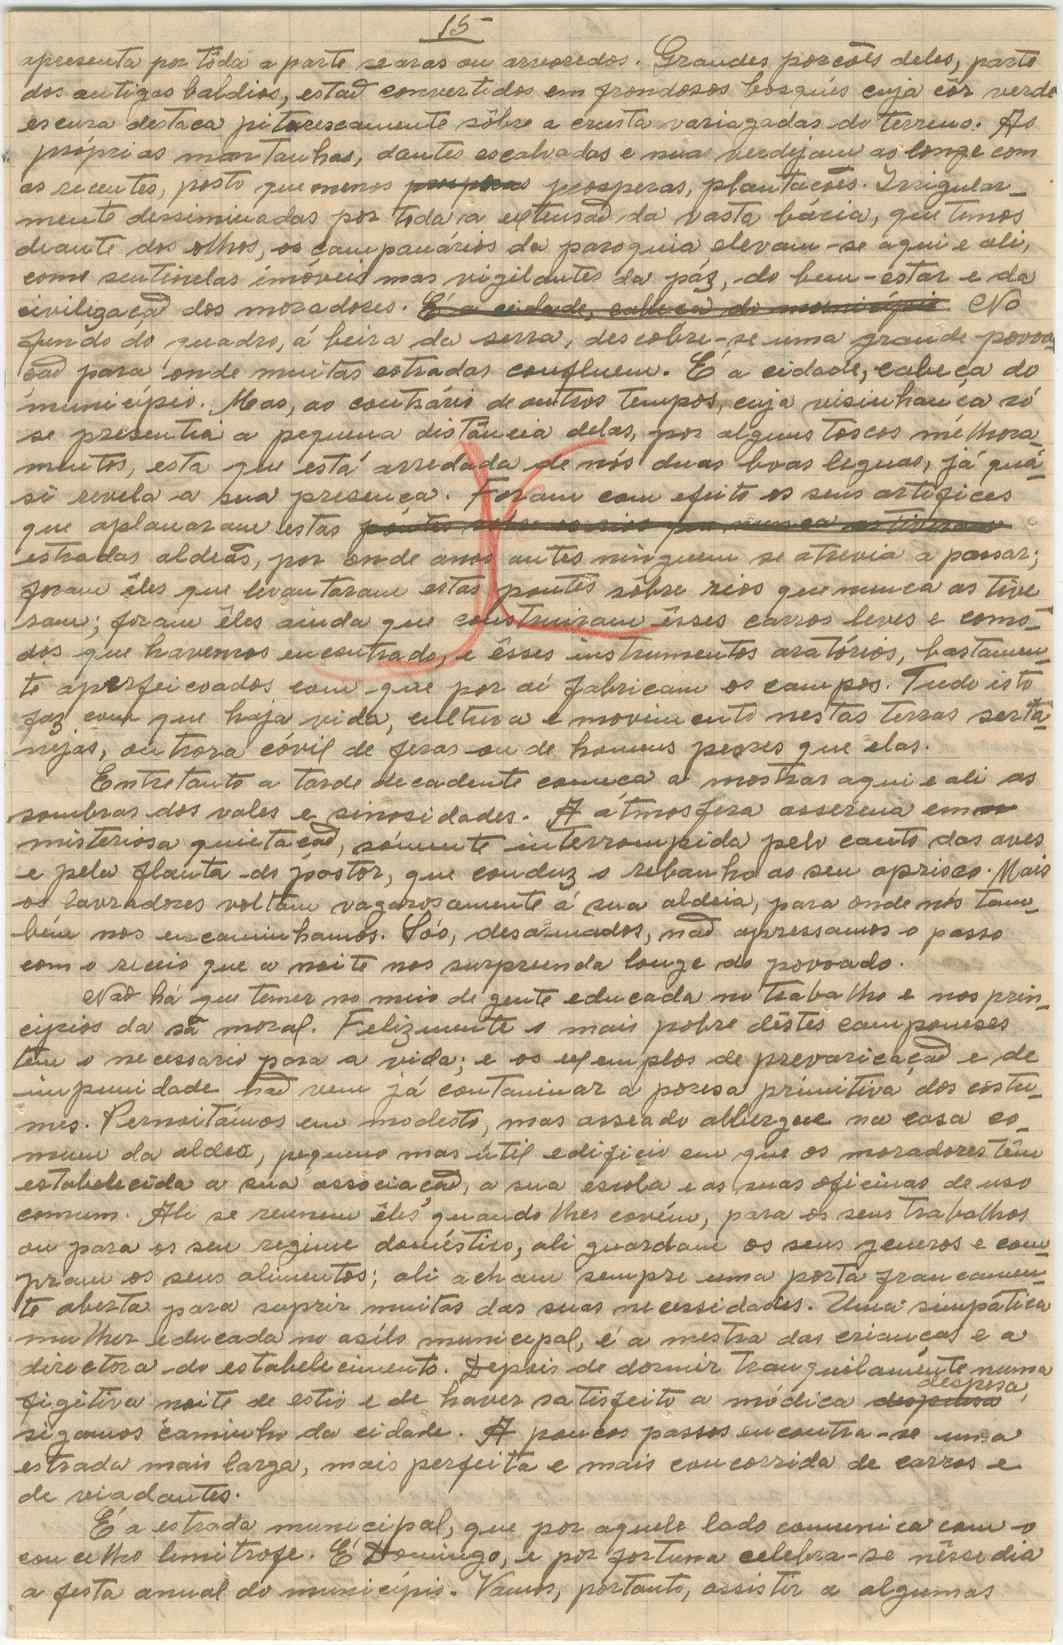 15
apresenta por tôda a parte searas ou arvoredos. Grandes porcões deles, parte
dos antigos baldios, estaõ convertidos em frondosos bosquês cuja côr verde
escura destaca pitorescamente sôbre a crusta variagadas do terreno. As
próprias montanhas, dantes escalvadas e nuas verdejam ao longe com
as recentes, posto que menos prosperas prosperas, plantacões. Irrigular-
mente dessiminadas por toda a extensaõ da vasta bácia, que temos
deante dos olhos, os campanários da paroquia elevam-se aqui e ali,
como sentinelas imoveis mas vigilantes da páz, do bem-estar e da
civilizaçaõ dos moradores. É a cidade, cabeça do município No
fundo do quadro, á beira da serra, descobre-se uma grande povoa
çaõ para onde muitas estradas confluem. É a cidade, cabeça do
município. Mas, ao contrário de outros tempos, cuja visinhança só
se presentia a pequena distância delas, por alguns toscos melhora-
mentos, esta que está arredada de nós duas boas leguas, já quá-
si revela a sua presença. Foram com efeito os seus artifices
que aplanaram estas pontes sôbre os rios que nunca as tiveram
estradas aldeãs, por onde anos antes ninguem se atrevia a passar;
foram êles que levantaram estas pontes sôbre rios que nunca as tive
ram; foram êles ainda que construiram êsses carros leves e como-
dos que havemos encontrado, e êsses instrumentos aratórios, bastamen-
te aperfeicoados com que por aí fabricam os campos. Tudo isto
faz com que haja vida, cultura e movimento nestas terras serta-
nejas, outrora cóvil de feras ou de homens peores que elas.
Entretanto a tarde decadente comeca a mostrar aqui e ali as
sombras dos vales e sinosidades. A atmosfera asserena em
misteriosa quietaçaõ, sómente interrompida pelo canto das aves
e pela flauta do pastor, que conduz o rebanho ao seu aprisco. Mais
os lavradores voltam vagarosamente á sua aldeia, para onde nós tam-
bém nos encaminhamos. Sós, desarmados, naõ apressamos o passo
com o receio que a noite nos surpreenda longe do povoado.
Naõ há que temer no meio de gente educada no trabalho e nos prin-
cipios da sã moral. Felizmente o mais pobre dêstes camponeses
têm o necessario para a vida; e os exemplos de prevaricaçaõ e de
impunidade naõ vem já contaminar a poresa primitiva dos costu-
mes. Pernoitámos em modesto, mas asseado albergue na casa co-
mum da aldea, pequeno mas útil edificio em que os moradores têm
estabelecida a sua associaçaõ, a sua escola e as suas oficinas de uso
comum. Ali se reunem êles quando lhes covém, para os seus trabalhos
ou para os seu regime doméstico, ali guardam os seus generos e com-
pram os seus alimentos; ali acham sempre uma porta francamen-
te aberta para suprir muitas das suas necessidades. Uma simpática
mulher educada no asilo municipal, é a mestra das crianças e a
directora do estabelecimento. Depois de dormir tranquilamente numa
figitiva noite de estio e de haver satisfeito a módica despesa despesa,
sigamos caminho da cidade. A poucos passos encontra-se uma
estrada mais larga, mais perfeita e mais concorrida de carros e
de viadantes.
É a estrada municipal, que por aquele lado comunica com o
concelho limitrofe. É Domingo, e por fortuna celebra-se nêsse dia
a festa anual do município. Vamos, portanto, assistir a algumas